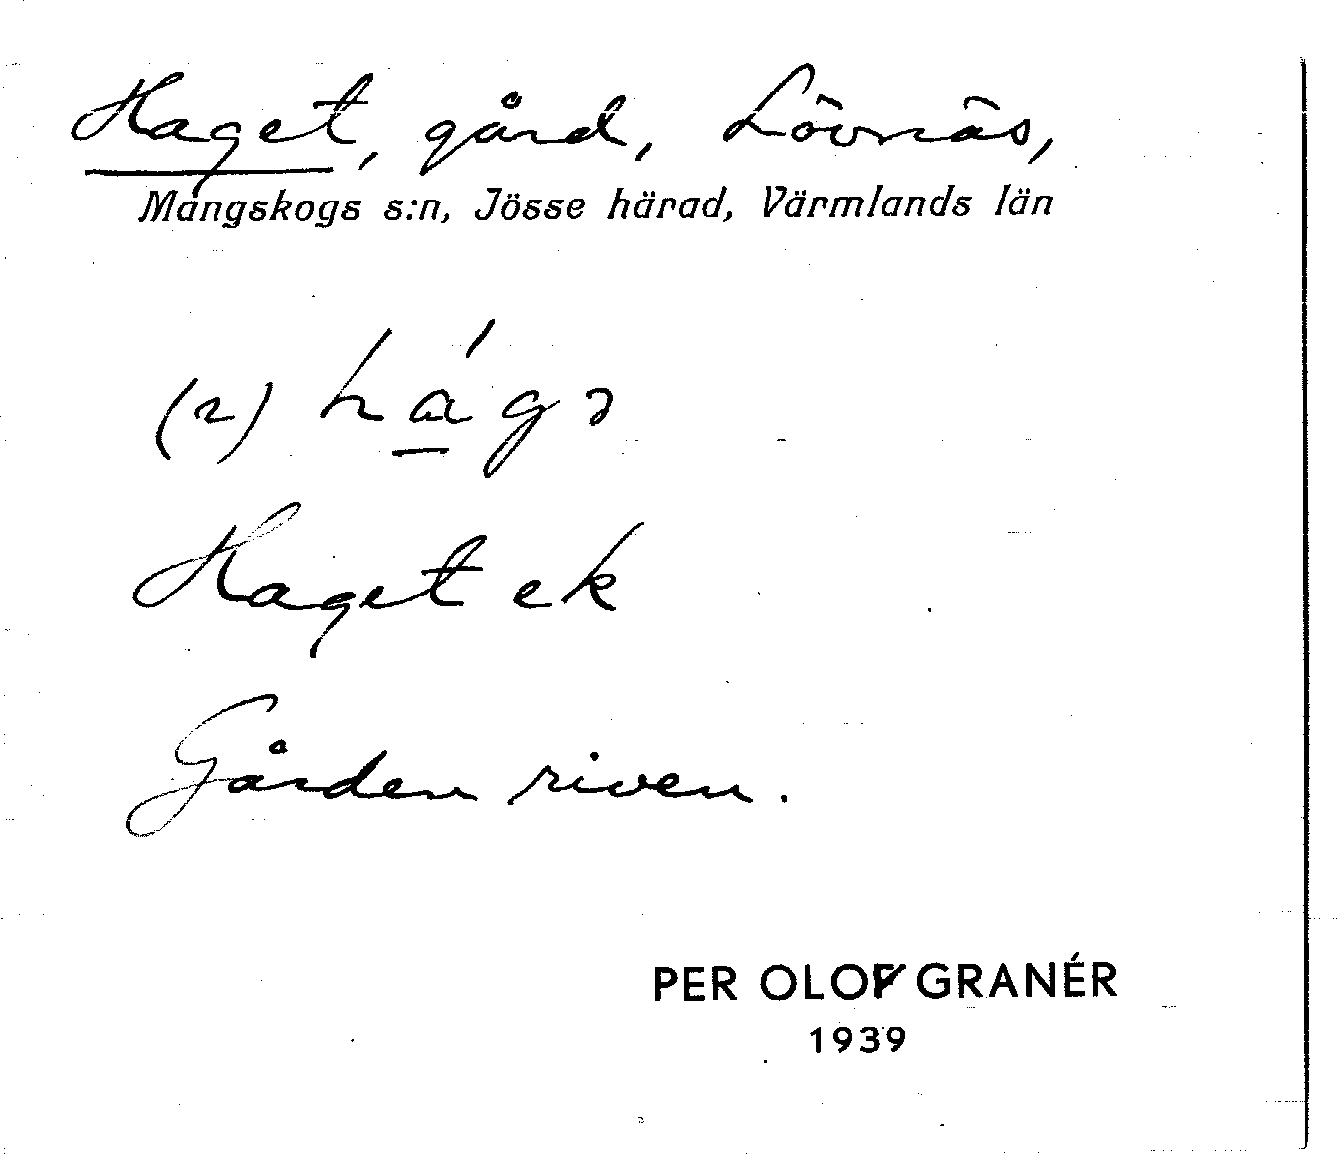 Haget, gård, Lövnäs,
Mangskogs s:n, Jösse härad, Värmlands län
(2) há̱gə
Haget ek
Gården riven.
PER OLOF GRANÉR
1939